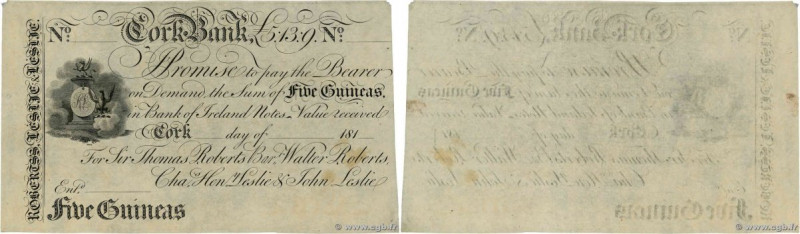 No Cork Bank, £5.13.9. No
I Promise to pay the Bearer
on Demand the Sum of Five Guineas,
in Bank of Ireland Notes Value received
Cork day of 181
For Sir Thomas Roberts Bar.t Walter Roberts,
Cha.s Hen.y Leslie & John Leslie
Ent.d
Five Guineas
ROBERTS'S, LESLIE & LESLIE.
www.cgb.fr